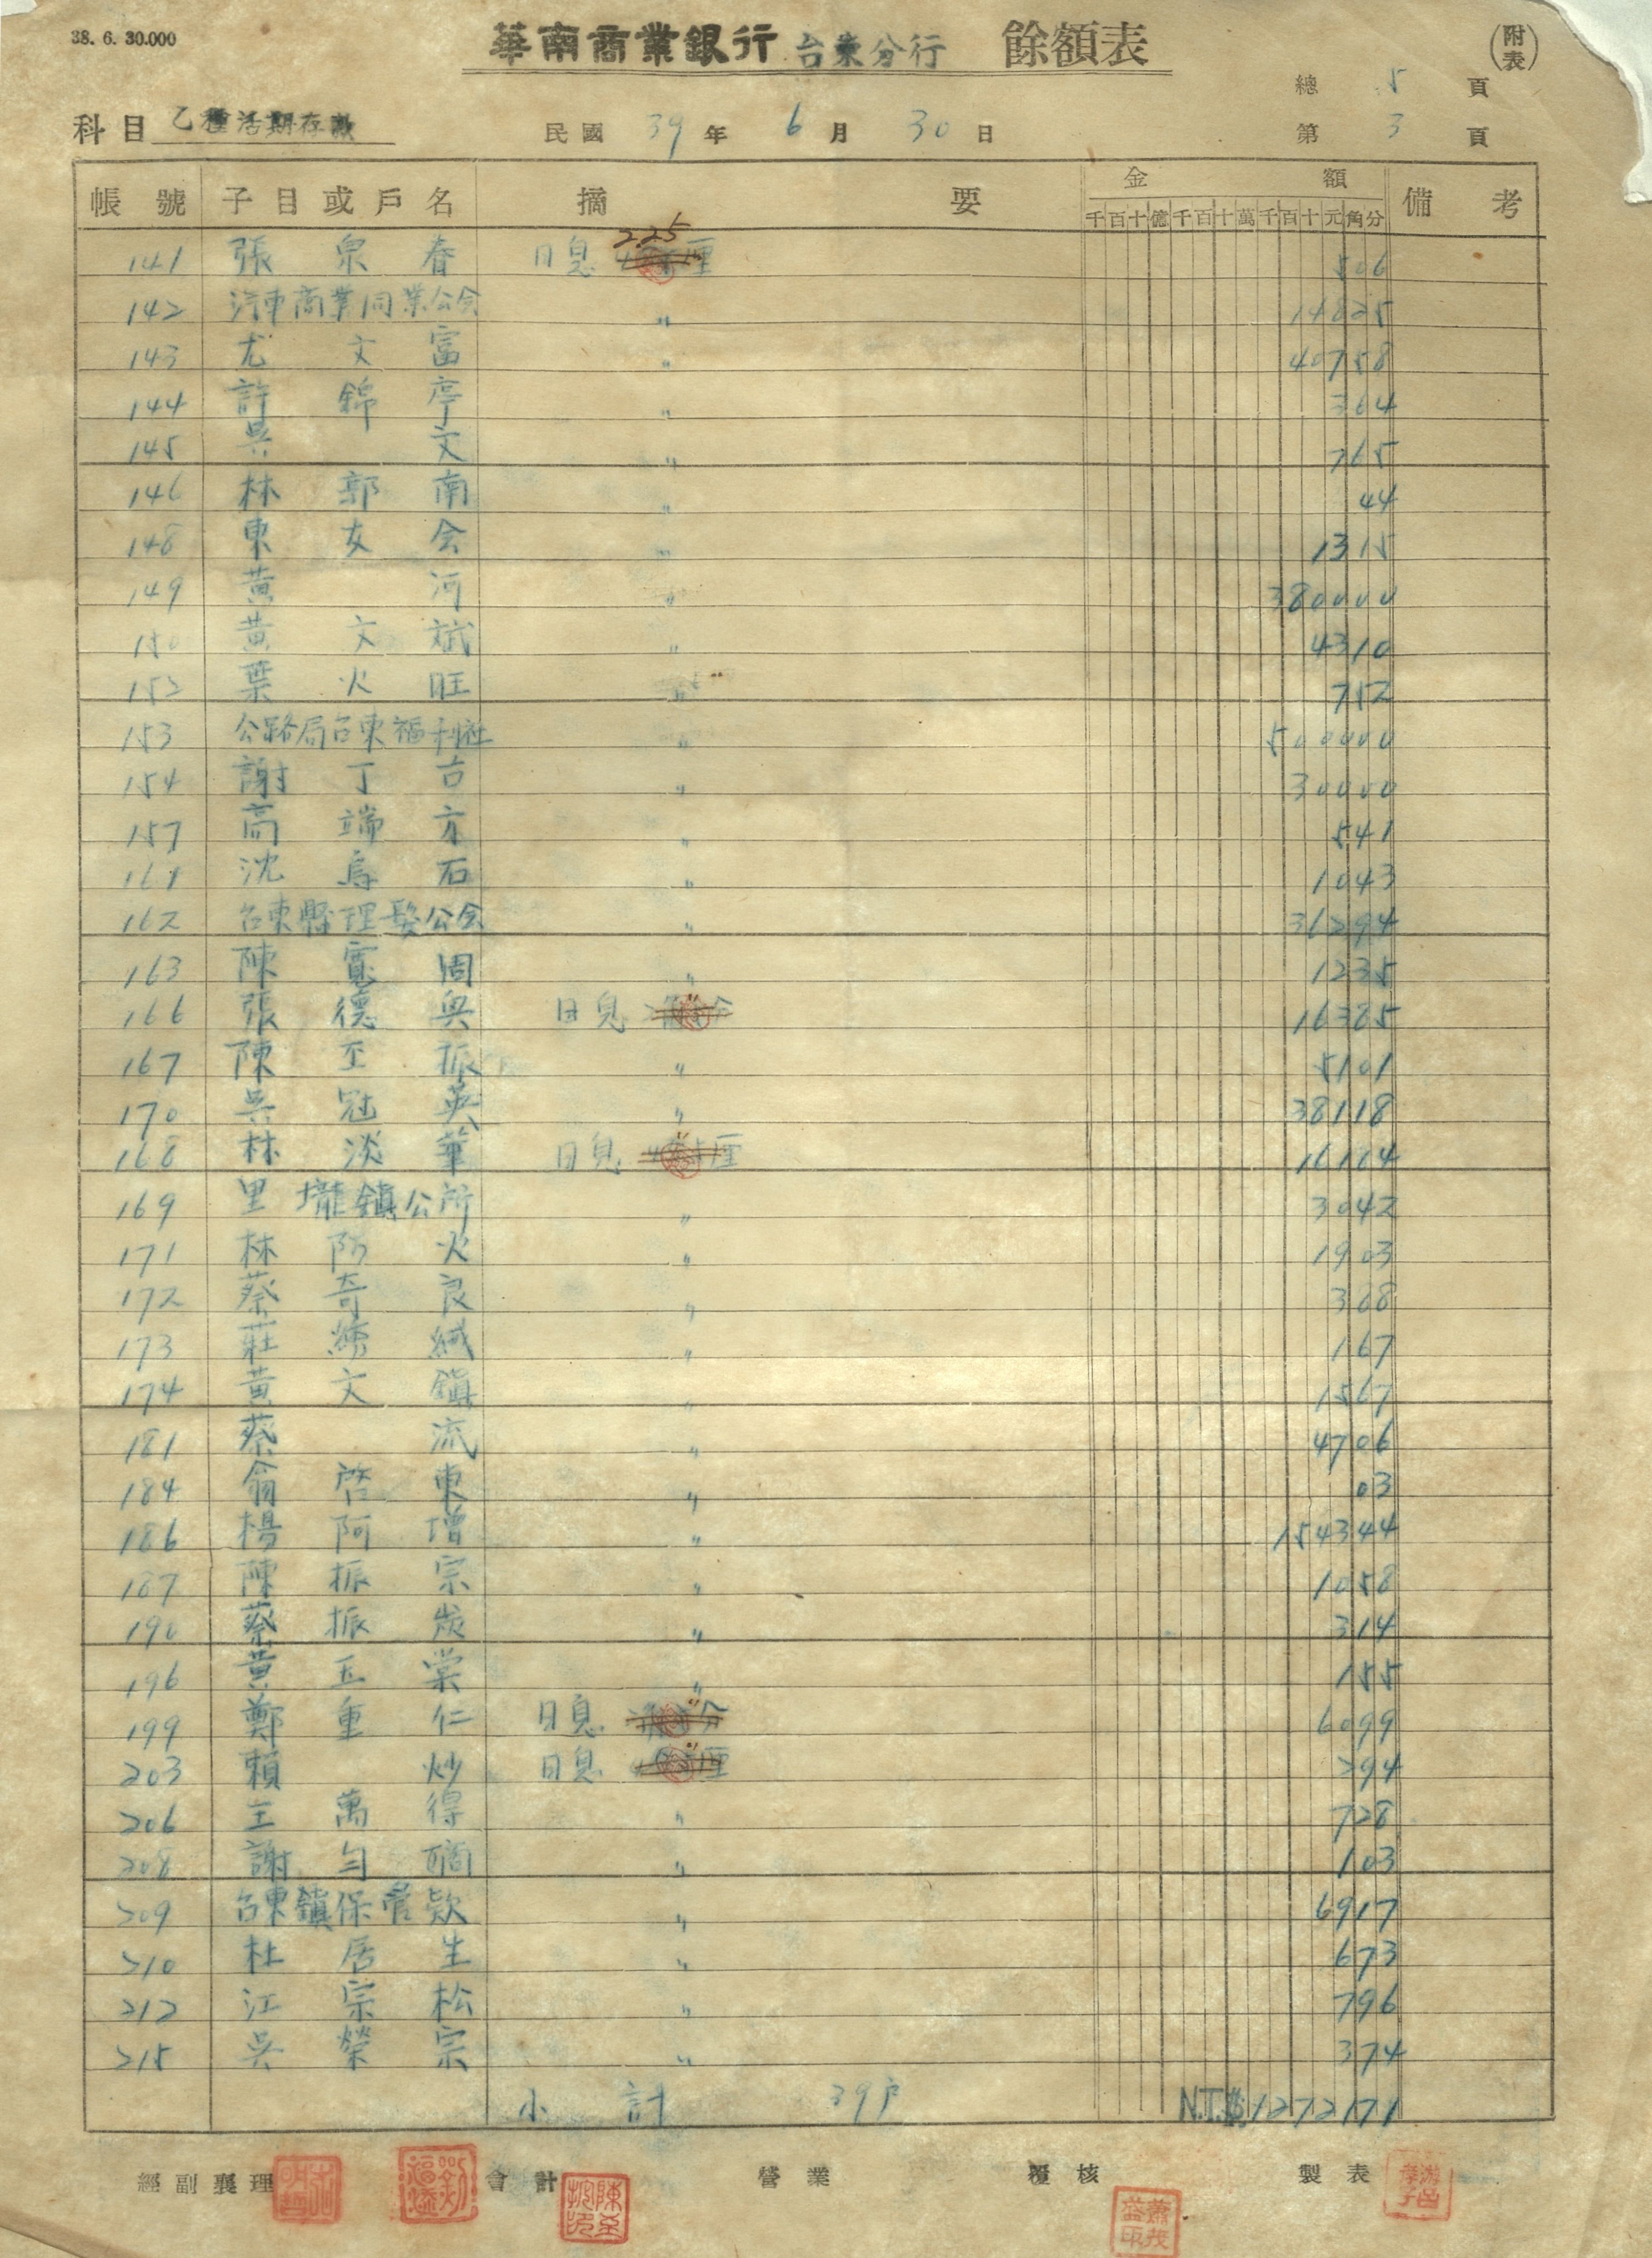 38. 6. 30.000
華南商業銀行 台東分行 餘額表 (附表)
總 5 頁
科目 乙種活期存款 民國 39 年 6 月 30 日 第 3 頁
帳號 子目或戶名 摘要 金額 備考
千百十億千百十萬千百十元角分
141 張泉春 日息 2.25 506
142 汽車商業同業公会 〃 14825
143 尤文富 〃 40758
144 許錦亭 〃 364
145 吳文 〃 765
146 林郭南 〃 44
148 東友会 〃 1315
149 黃河 〃 380000
150 黃文斌 〃 4310
152 葉火旺 〃 752
153 公路局台東福利社 〃 500000
154 謝丁吉 〃 30000
157 高端方 〃 541
161 沈烏石 〃 1043
162 台東縣理髮公会 〃 36294
163 陳寬周 〃 1235
166 張德與 日息 〃 16385
167 陳玉振 〃 5101
170 吳冠英 〃 38118
168 林淡華 日息 〃 16164
169 里壠鎮公所 〃 3042
171 林防火 〃 1903
172 蔡奇良 〃 368
173 莊 〃 167
174 黃文鎮 〃 1567
181 蔡流 〃 4706
184 翁啓東 〃 03
186 楊阿增 〃 154344
187 陳振宗 〃 1058
190 蔡振炭 〃 314
196 黃玉棠 〃 155
199 鄭重仁 日息 〃 6099
203 賴炒 日息 〃 294
206 王萬得 〃 728
208 謝 〃 103
209 台東鎮保管款 〃 6917
210 杜居生 〃 673
212 江宗松 〃 796
215 吳榮宗 〃 374
小計 39戶 N.T.$1272171
經副襄理 會計 營業 覆核 製表